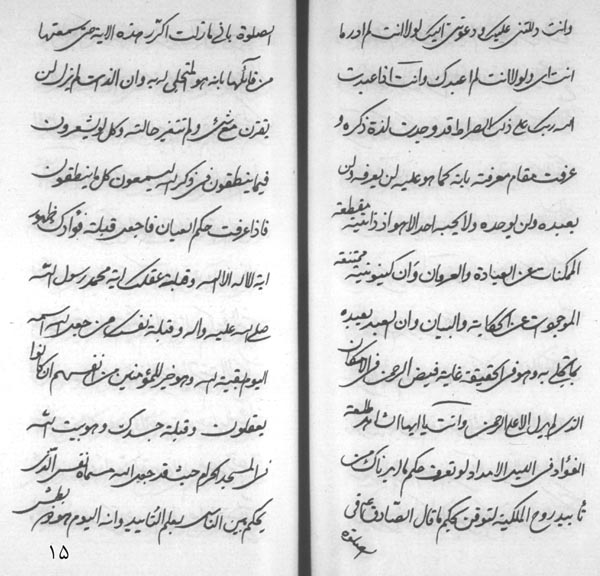 وانت دللتنی علیک و دعوتنی الیک لولا انت لم ادر ما
انت ای ولولا انت لم اعبدک وانت اذا عبدت
الله ربک علی ذلک الصراط قد وجدت لذة ذکره و
عرفت مقام معرفته بانه کما هو علیه لن یعرفه ولن
یعبده ولن یوحده ولا یحبه احد الا هو اذ ذاتیته مقطعة
الممکنات عن العبادة والعرفان وان کینونیته ممتنعة
الموجودات عن الحکایة والبیان وان العبد یعبده
بما تجلی به وهو فی الحقیقة غایة فیض الرحمن فی الامکان
الذی لم یزل الا علی الرحمن وانت یا ایها الشاهد طلعة
الفؤاد فی اللیل الامداد لو تعرف حکم ما البرناک من
تأیید روح الملکیة لتوقن بحکم ما قال الصادق ع فی
صلوته
الصلوة بانی ما زلت اکرر هذه الایة حتی سمعتها
من قائلها بانه هو المتجلی لربه وان الذات لم یزل لن
یقترن مع شئ ولم تتغیر حالته وکل لا یشعرون
فیما ینطقون فی ذکره لا یسمعون کل ما ینطقون
فاذا عرفت حکم العیان فاجعل قبلة فؤادک ظهور
ایة لا اله الا الله وقبلة عقلک ایة محمد رسول الله
صلی الله علیه واله وقبلة نفسک من جعل الله اسمه
الیوم بقیة الله وهو خیر للمؤمنین من انفسهم ان کانوا
یعقلون وقبلة جسدک وهو بیت الله
فی المسجد الحرام حیث قد جعل الله مسماة لنفس الذی
یحکم بین الناس بعلم التأیید وانه الیوم هو
۱۵